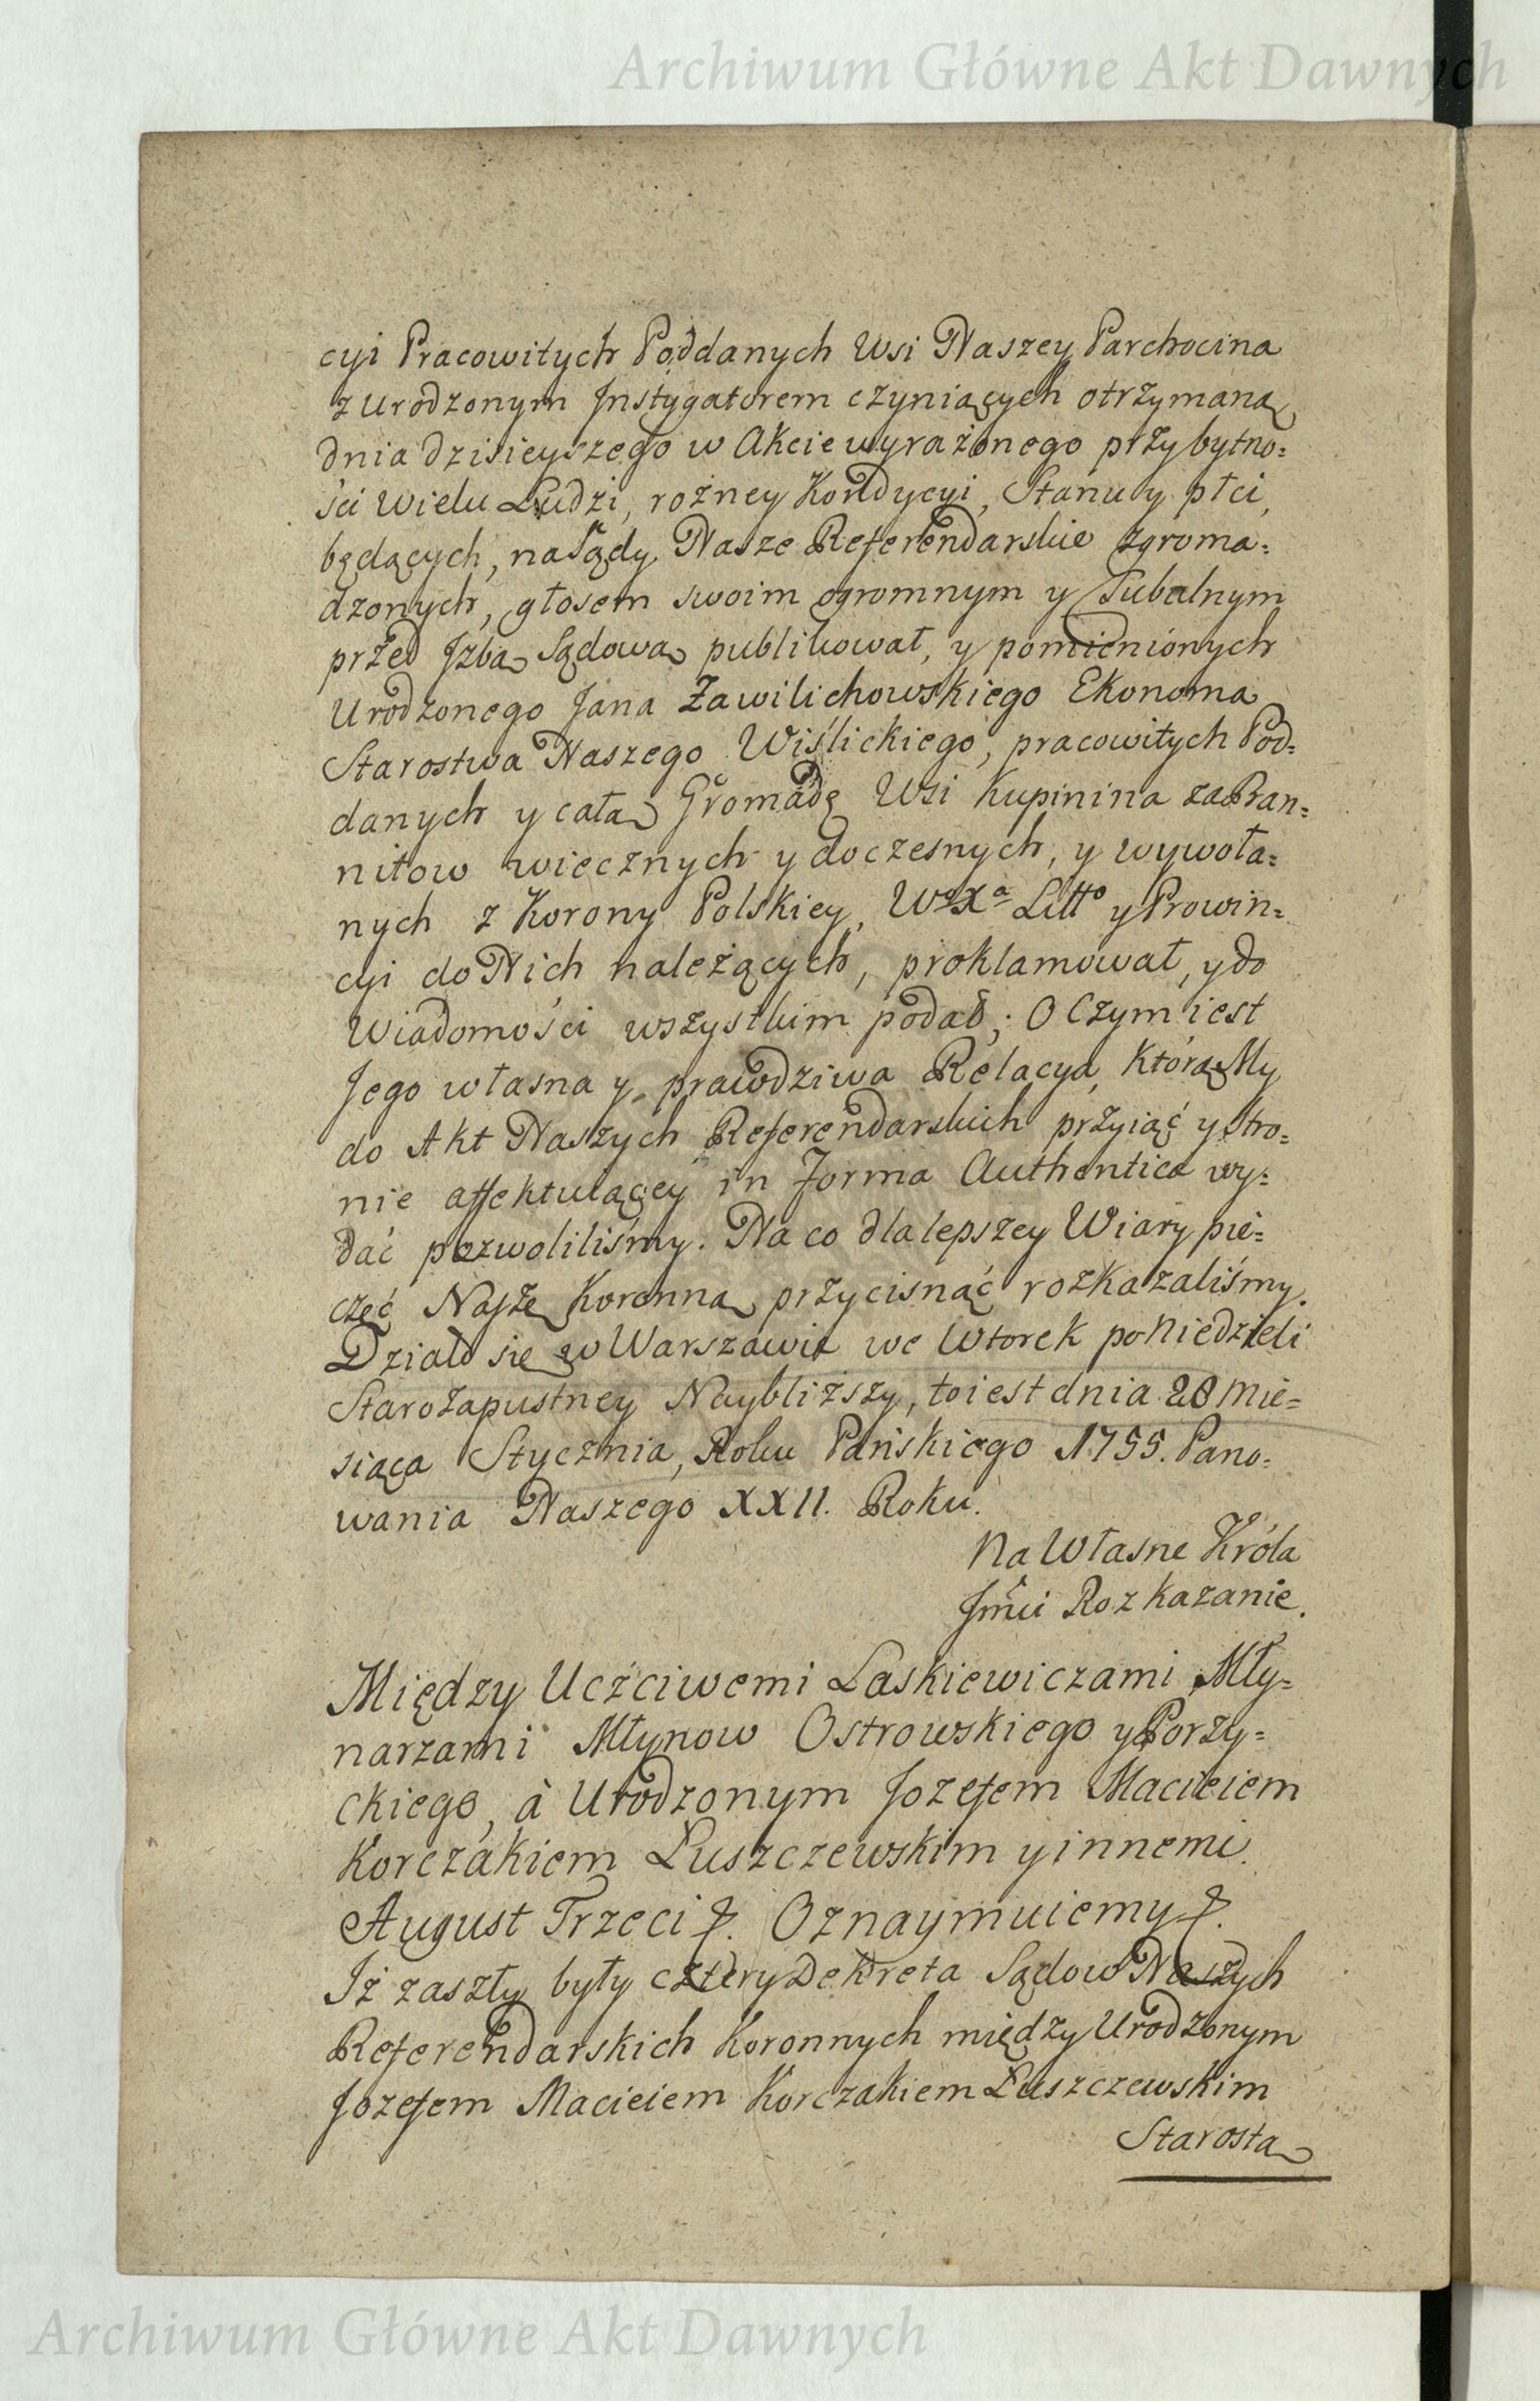 Archiwum Główne Akt Dawnych
cyi Pracowitych Poddanych Wsi Naszey Parchocina
z Urodzonym Jnstygatorem czyniących otrzymaną
dnia dzisieyszego w Akcie wyrażonego przy bytno=
ści wielu Ludzi, rożney Kondycyi, Stanu y płci,
będących, na Sądy Nasze Referendarskie zgroma=
dzonych, głosem swoim ogromnym y Tubalnym
przed Jzbą Sądową publikował, y pomienionych
Urodzonego Jana Zawilichowskiego Ekonoma
Starostwa Naszego Wiślickiego, pracowitych Pod=
danych y całą Gromadę Wsi Kupinina za Ban=
nitow wiecznych y doczesnych, y wywoła=
nych z Korony Polskiey, Wo Xa Litto y Prowin=
cyi do Nich należących, proklamował, y do
Wiadomości wszystkim podał; O Czym iest
Jego własna y prawdziwa Relacya, Którą My
do Akt Naszych Referendarskich przyiąć y stro=
nie affektuiącey in Forma Authentica wy=
dać pozwoliliśmy. Na co dla lepszey Wiary pie=
częć Naszę Koronną przycisnąć rozkazaliśmy.
Działo się w Warszawie we Wtorek po Niedzieli
Starozapustney Naybliższy, to iest dnia 28 Mie=
siąca Stycznia, Roku Pańskiego 1755. Pano=
wania Naszego XXII. Roku.
Na Własne Króla
Jmći Rozkazanie.
Między Uczciwemi Laskiewiczami Mły=
narzami Młynow Ostrowskiego y Porzy=
ckiego, à Urodzonym Jozefem Macieiem
Korczakiem Łuszczewskim y innemi.
August Trzeci &. Oznaymuiemy &.
Iż zaszły były cztery Dekreta Sądow Naszych
Referendarskich Koronnych między Urodzonym
Jozefem Macieiem Korczakiem Łuszczewskim
Starostą
Archiwum Główne Akt Dawnych